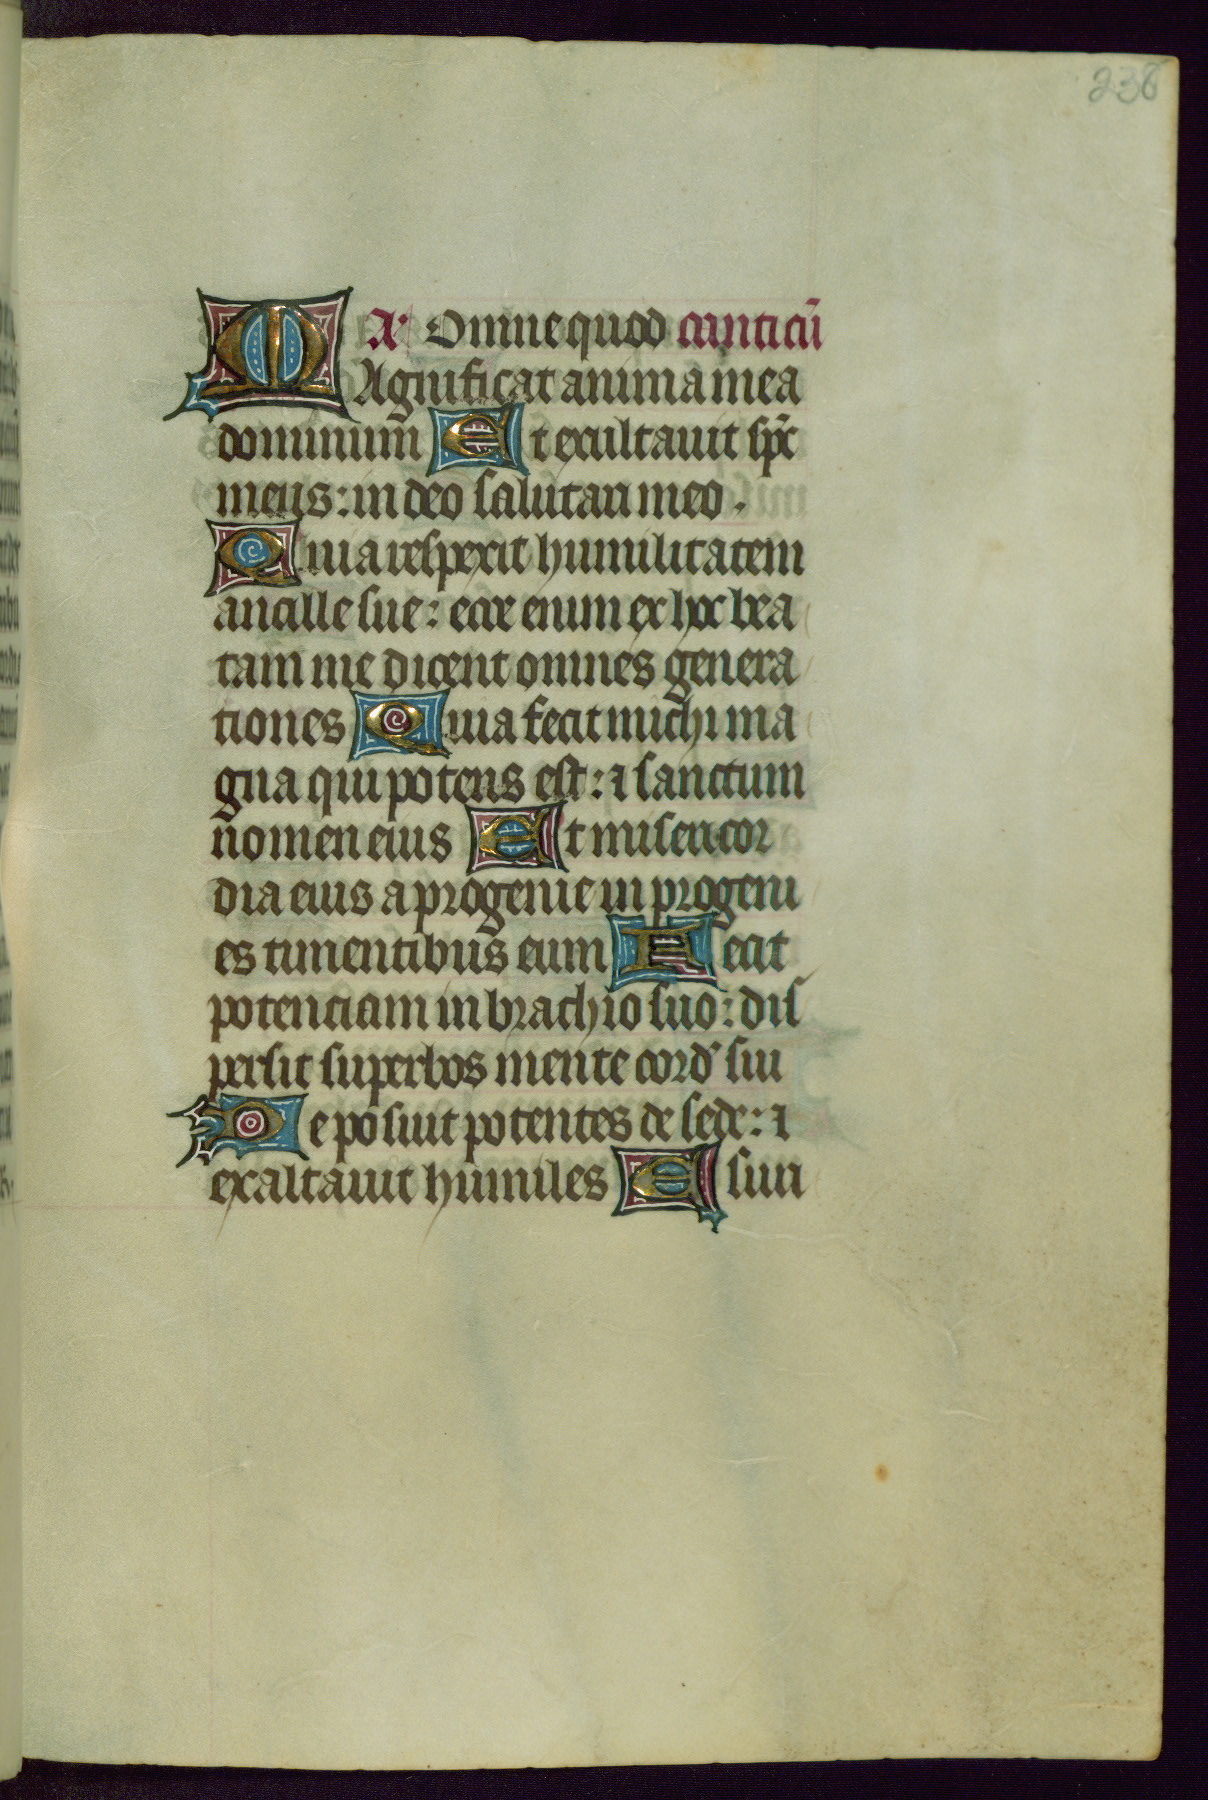 238
A· Omne quod canticū
MAgnificat anima mea
dominum Et exultauit sp̄c
meus: in deo salutari meo.
Quia respexit humilitatem
ancille sue: ecce enim ex hoc bea
tam me dicent omnes genera
tiones Quia fecit michi ma
gna qui potens est: ⁊ sanctum
nomen eius Et misericor
dia eius a progenie in progeni
es timentibus eum Fecit
potenciam in brachio suo: dis
persit superbos mente cord' sui
Deposuit potentes de sede: ⁊
exaltauit humiles Esuri